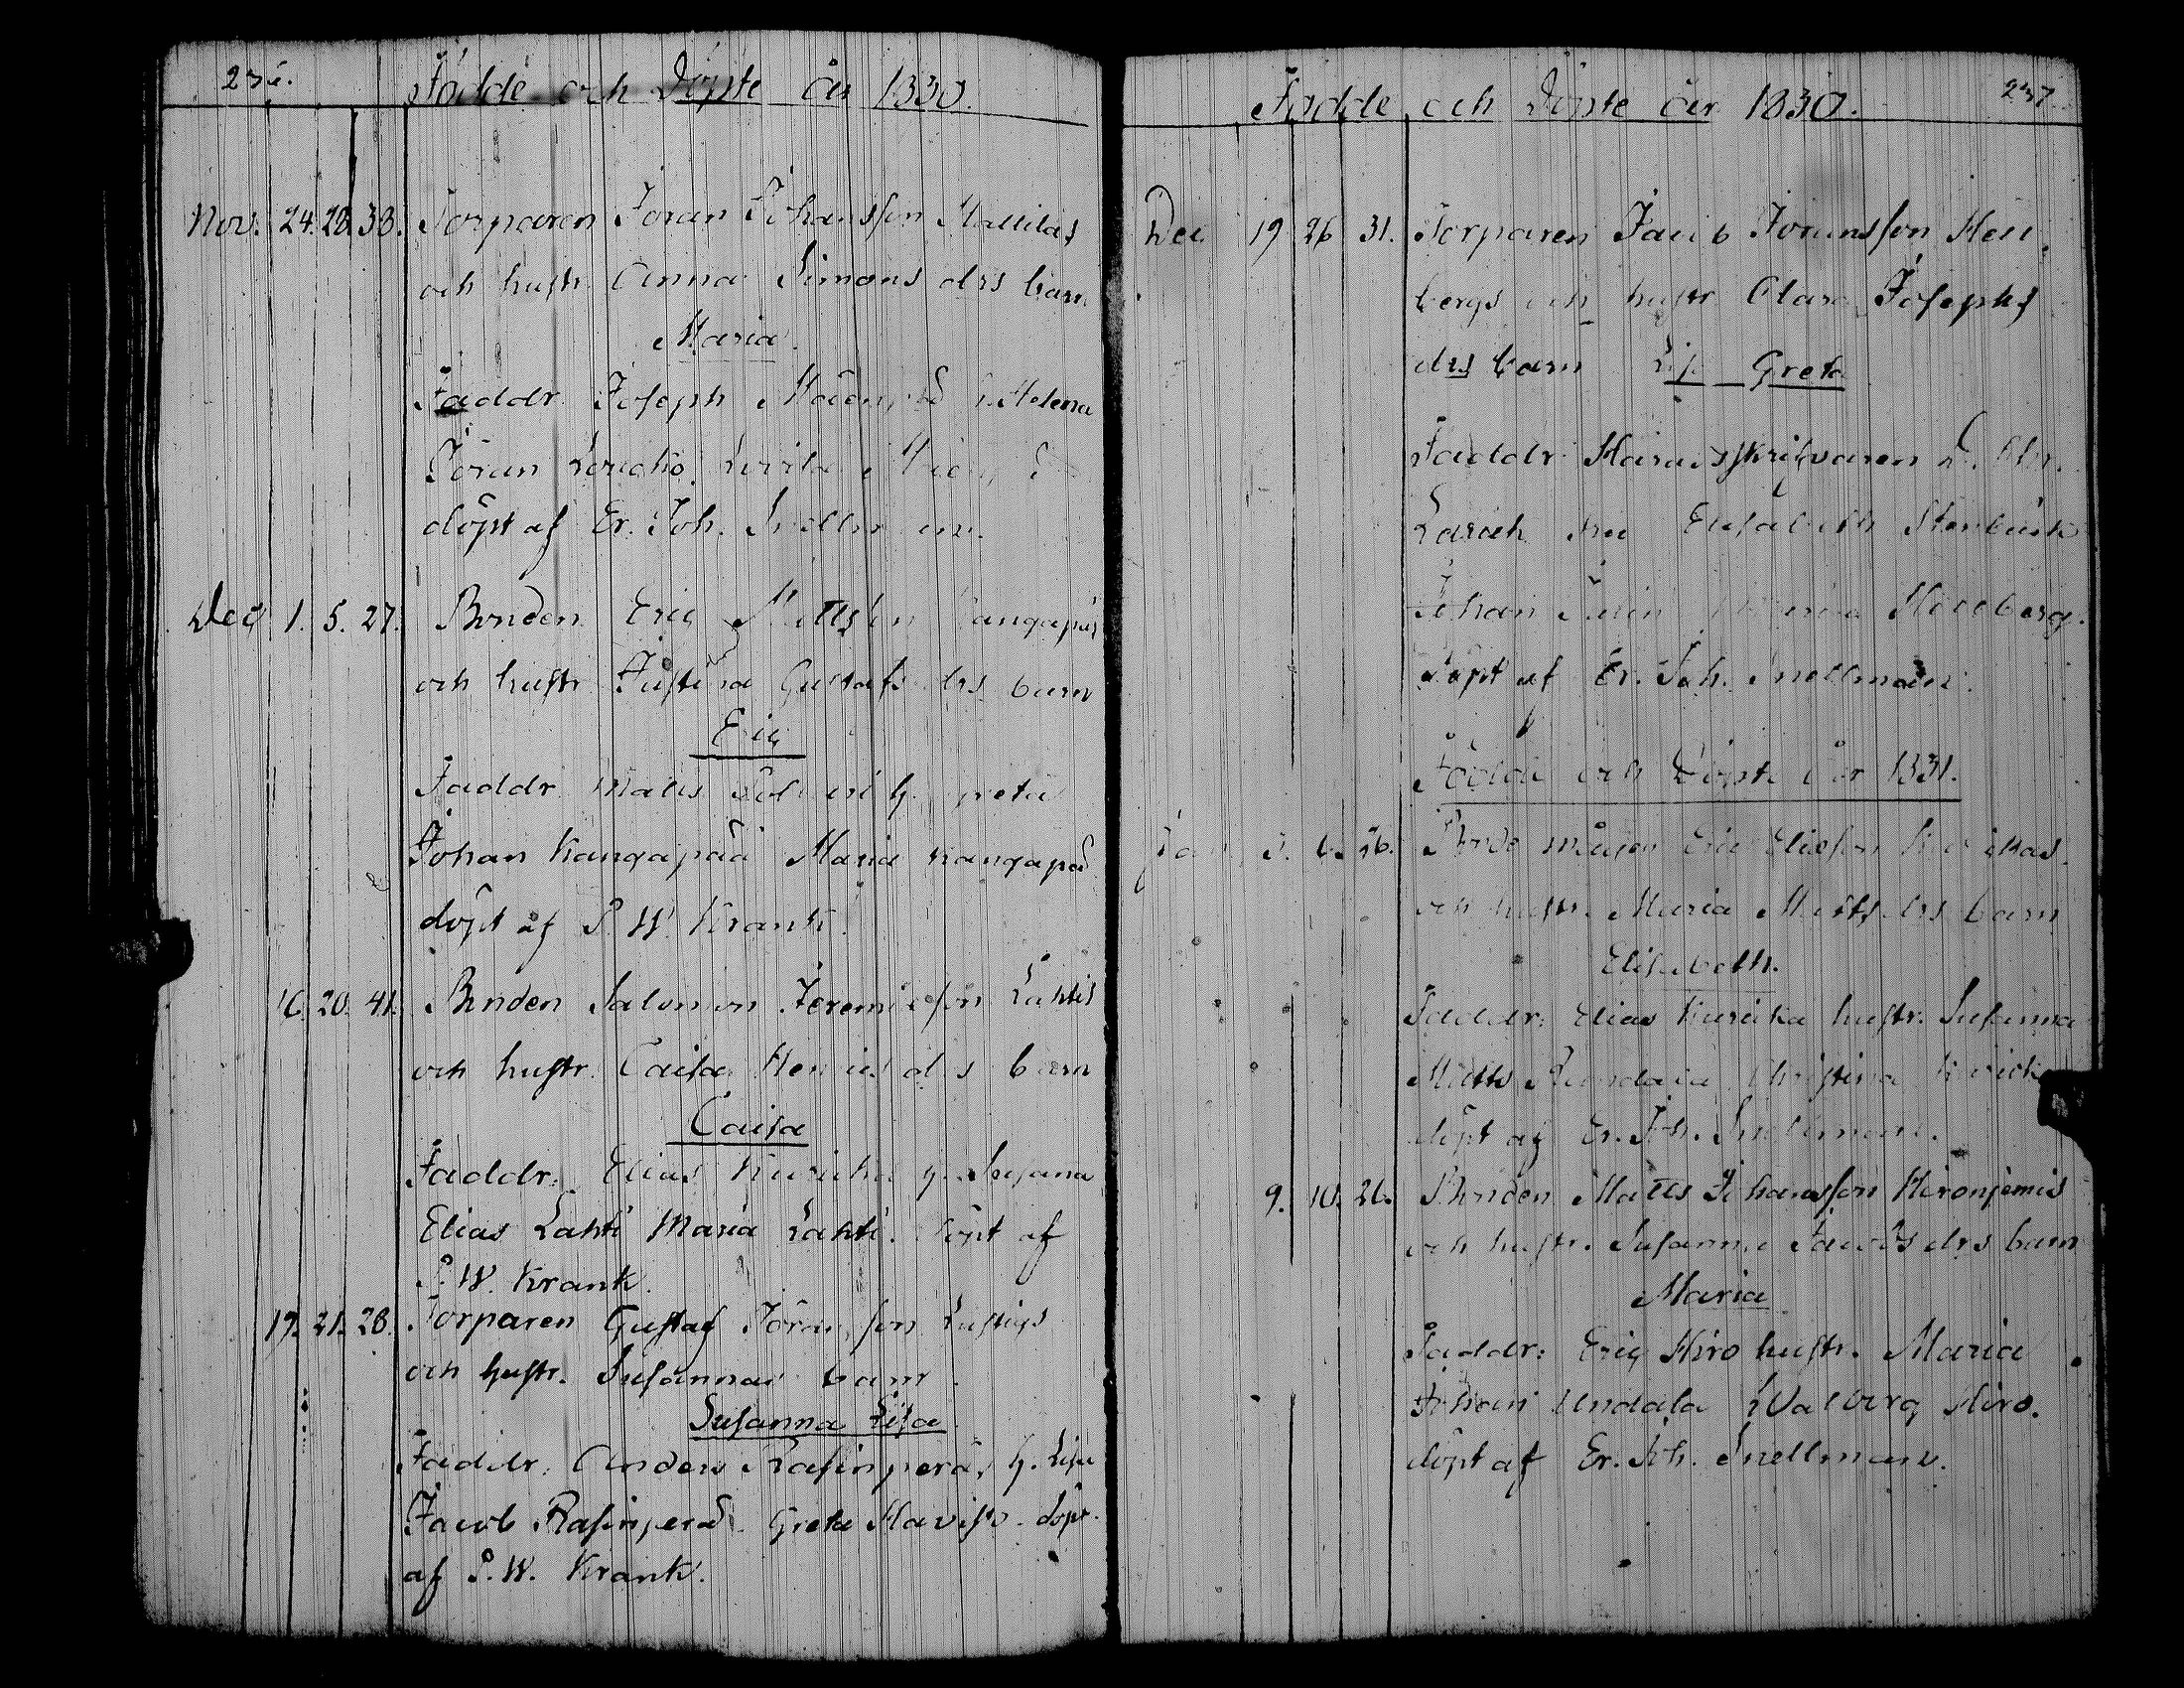 236.
Födde och Döpte år 1830.
Nov. 24. 28. 38. Torparen Jöran Johansson Mattilas
och hustr. Anna Simons drs barn
Maria.
Faddr. Joseph h. Helena
Jöran Lovisa
döpt af Er. Joh. Snellman.
Dec 1. 5. 27. Bonden Eric Mattsson Kangapää
och hustr. Justina Gustafs drs barn
Eric
Faddr. Matts h. Greta
Johan Kangapää Maria Kangapää
döpt af P. W. Krank.
16. 20. 41. Bonden Salomon Jeremiesson Lahtis
och hustr. Caisa Henrics drs barn
Caisa
Faddr. Elias Kuricka h. Susana
Elias Lahti Maria Lahti. döpt af
P. W. Krank.
19. 21. 28. Torparen Gustaf Jöransson Lustigs
och hustr. Susannas barn
Susanna Lisa
Faddr. Anders Rasinperä, h. Lisa
Jacob Rasinperä. Greta Havisto. döpt.
af P. W. Krank.
237.
Födde och Döpte år 1830.
Dec 19 26 31. Torparen Jacob Joransson Hed
bergs och hustr. Clara Josephs
drs barn Lis. Greta
Faddr. Häradsskrifvaren
fru Elisabeth Stenbäck
Johan Hedberg.
döpt af Er. Joh. Snellman.
Födde och Döpte år 1831.
Jan 5. 6. 26. Bonde mågen Eric Eliesson Kurickas.
och hustr. Maria Matts drs barn
Elisabeth.
Faddr. Elias Kuricka hustr. Susanna
Matts Christina Kuricka
döpt af Er. Joh. Snellman.
9. 10. 26. Bonden Matts Johansson Hironjemis
och hustr. Susanna Jacobs drs barn
Maria
Faddr: Eric Hiro hustr. Maria
Johan Undala Walborg Hiro.
döpt af Er. Joh. Snellman.